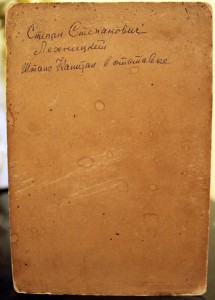 Степан Степанович
Лесницкий
Штабс Капитан в отставке